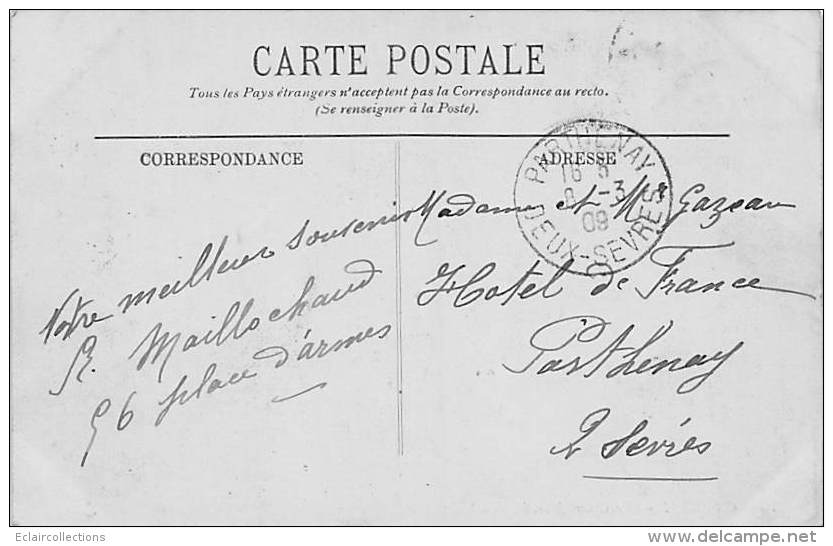 CARTE POSTALE
Tous les Pays étrangers n'acceptent pas la Correspondance au recto.
(Se renseigner à la Poste).
CORRESPONDANCE
ADRESSE
PARTHENAY
-3
09
DEUX-SEVRES
Notre meilleur souvenir
R. Maillochaud
56 place d'armes
Madame et Mr Gazeau
Hotel de France
Parthenay
2 Sevres
Eclaircollections
www.delcampe.net